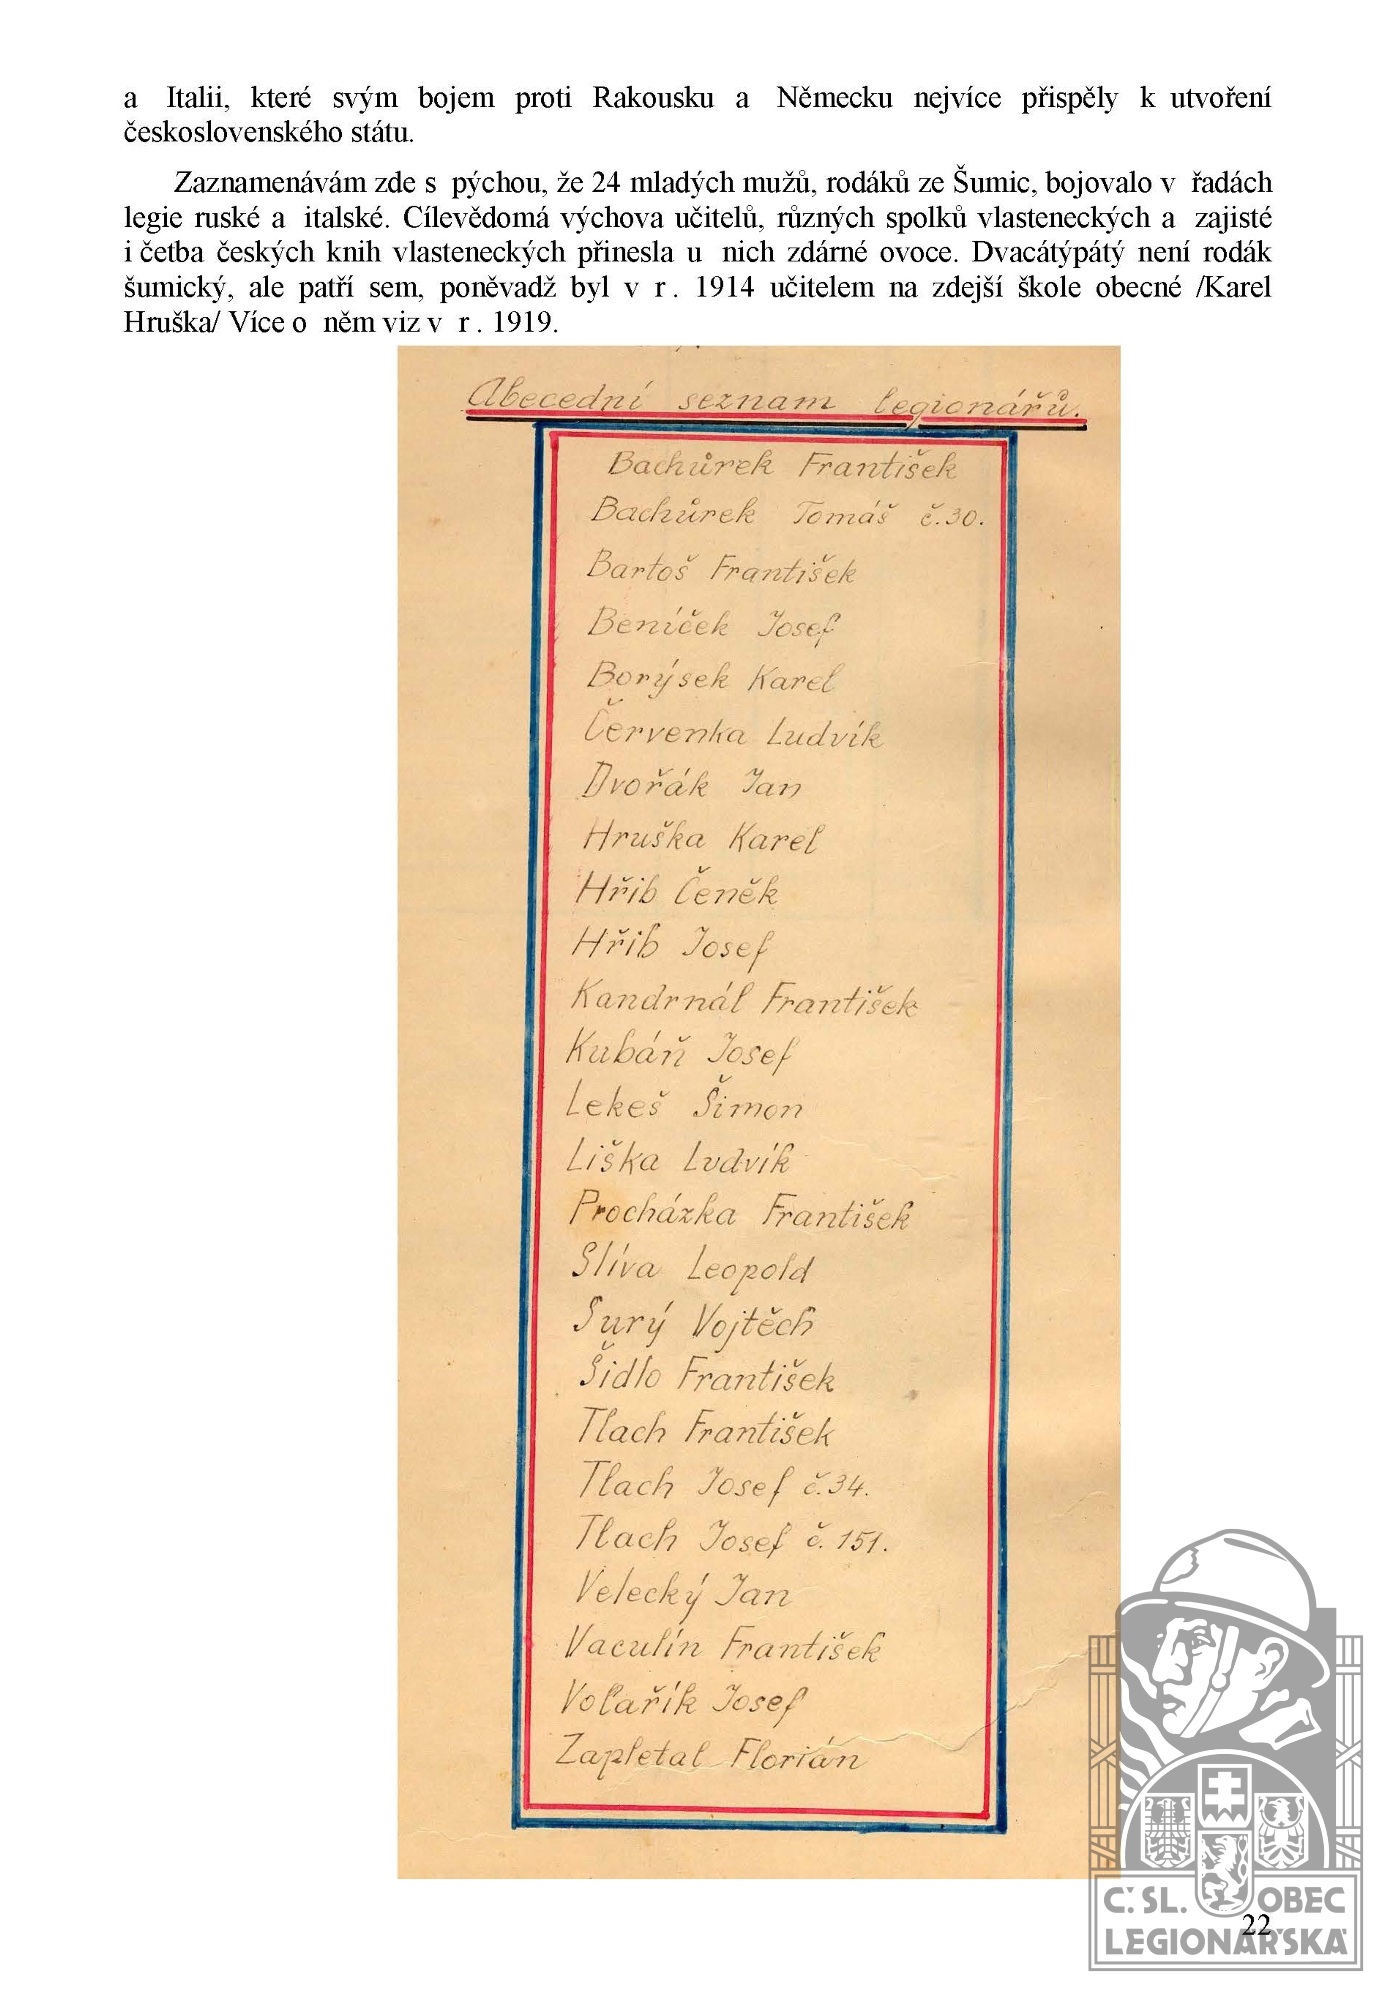 a Italii, které svým bojem proti Rakousku a Německu nejvíce přispěly k utvoření
československého státu.
Zaznamenávám zde s pýchou, že 24 mladých mužů, rodáků ze Šumic, bojovalo v řadách
legie ruské a italské. Cílevědomá výchova učitelů, různých spolků vlasteneckých a zajisté
i četba českých knih vlasteneckých přinesla u nich zdárné ovoce. Dvacátýpátý není rodák
šumický, ale patří sem, poněvadž byl v r . 1914 učitelem na zdejší škole obecné /Karel
Hruška/ Více o něm viz v r . 1919.
Abecední seznam legionářů.
Bachůrek František
Bachůrek Tomáš č.30.
Bartoš František
Beníček Josef
Borýsek Karel
Červenka Ludvík
Dvořák Jan
Hruška Karel
Hřib Čeněk
Hřib Josef
Kandrnál František
Kubáň Josef
Lekeš Šimon
Liška Ludvík
Procházka František
Slíva Leopold
Surý Vojtěch
Šidlo František
Tlach František
Tlach Josef č.34.
Tlach Josef č. 151.
Velecký Jan
Vaculín František
Volařík Josef
Zapletal Florián
Č. SL. OBEC
LEGIONÁŘSKÁ
22